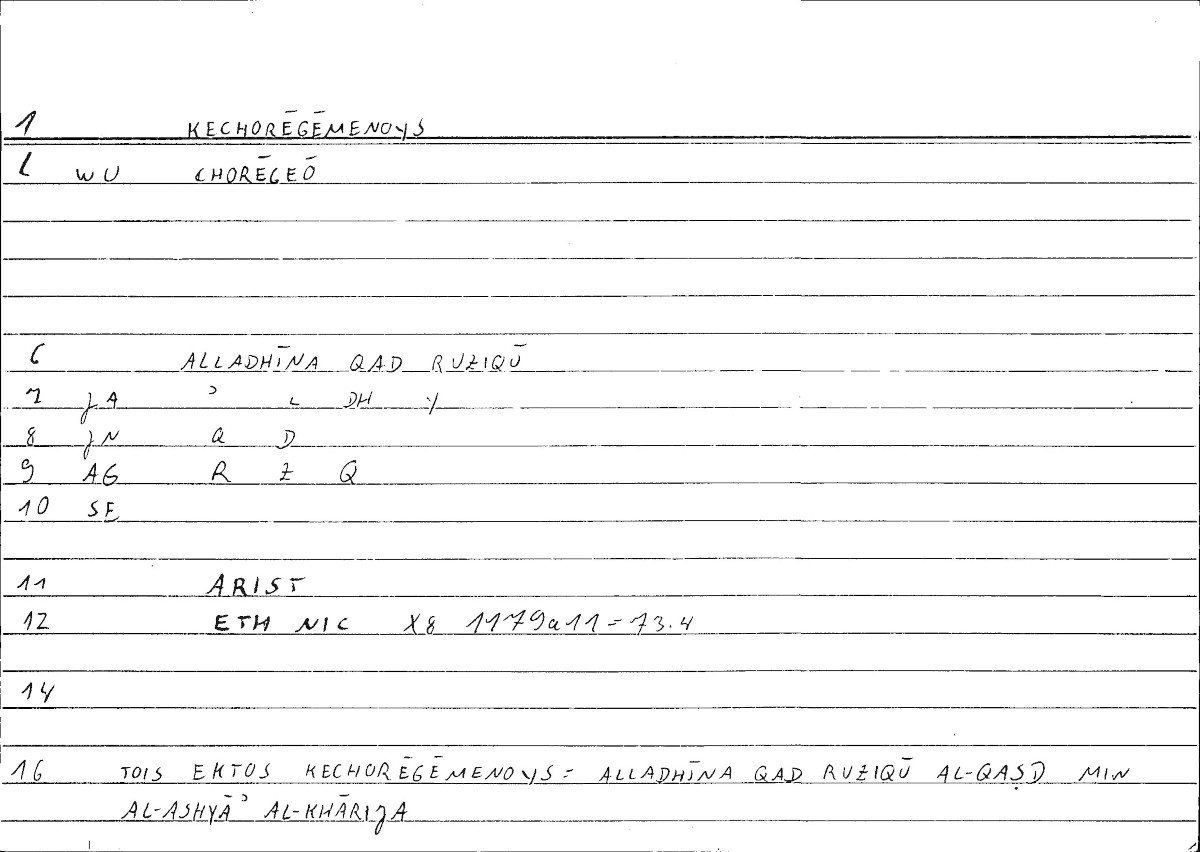 1 KECHORĒGĒMENOYS
2 WU CHORĒGEŌ
6 ALLADHĪNA QAD RUZIQŪ
7 JA ʾ L DH Y
8 JN Q D
9 AG R Z Q
10 SE
11 ARIST
12 ETH NIC X8 1179a11 = 73.4
14
16 TOIS EKTOS KECHORĒGĒMENOYS = ALLADHĪNA QAD RUZIQŪ AL-QAṢD MIN
AL-ASHYĀʾ AL-KHĀRIJA